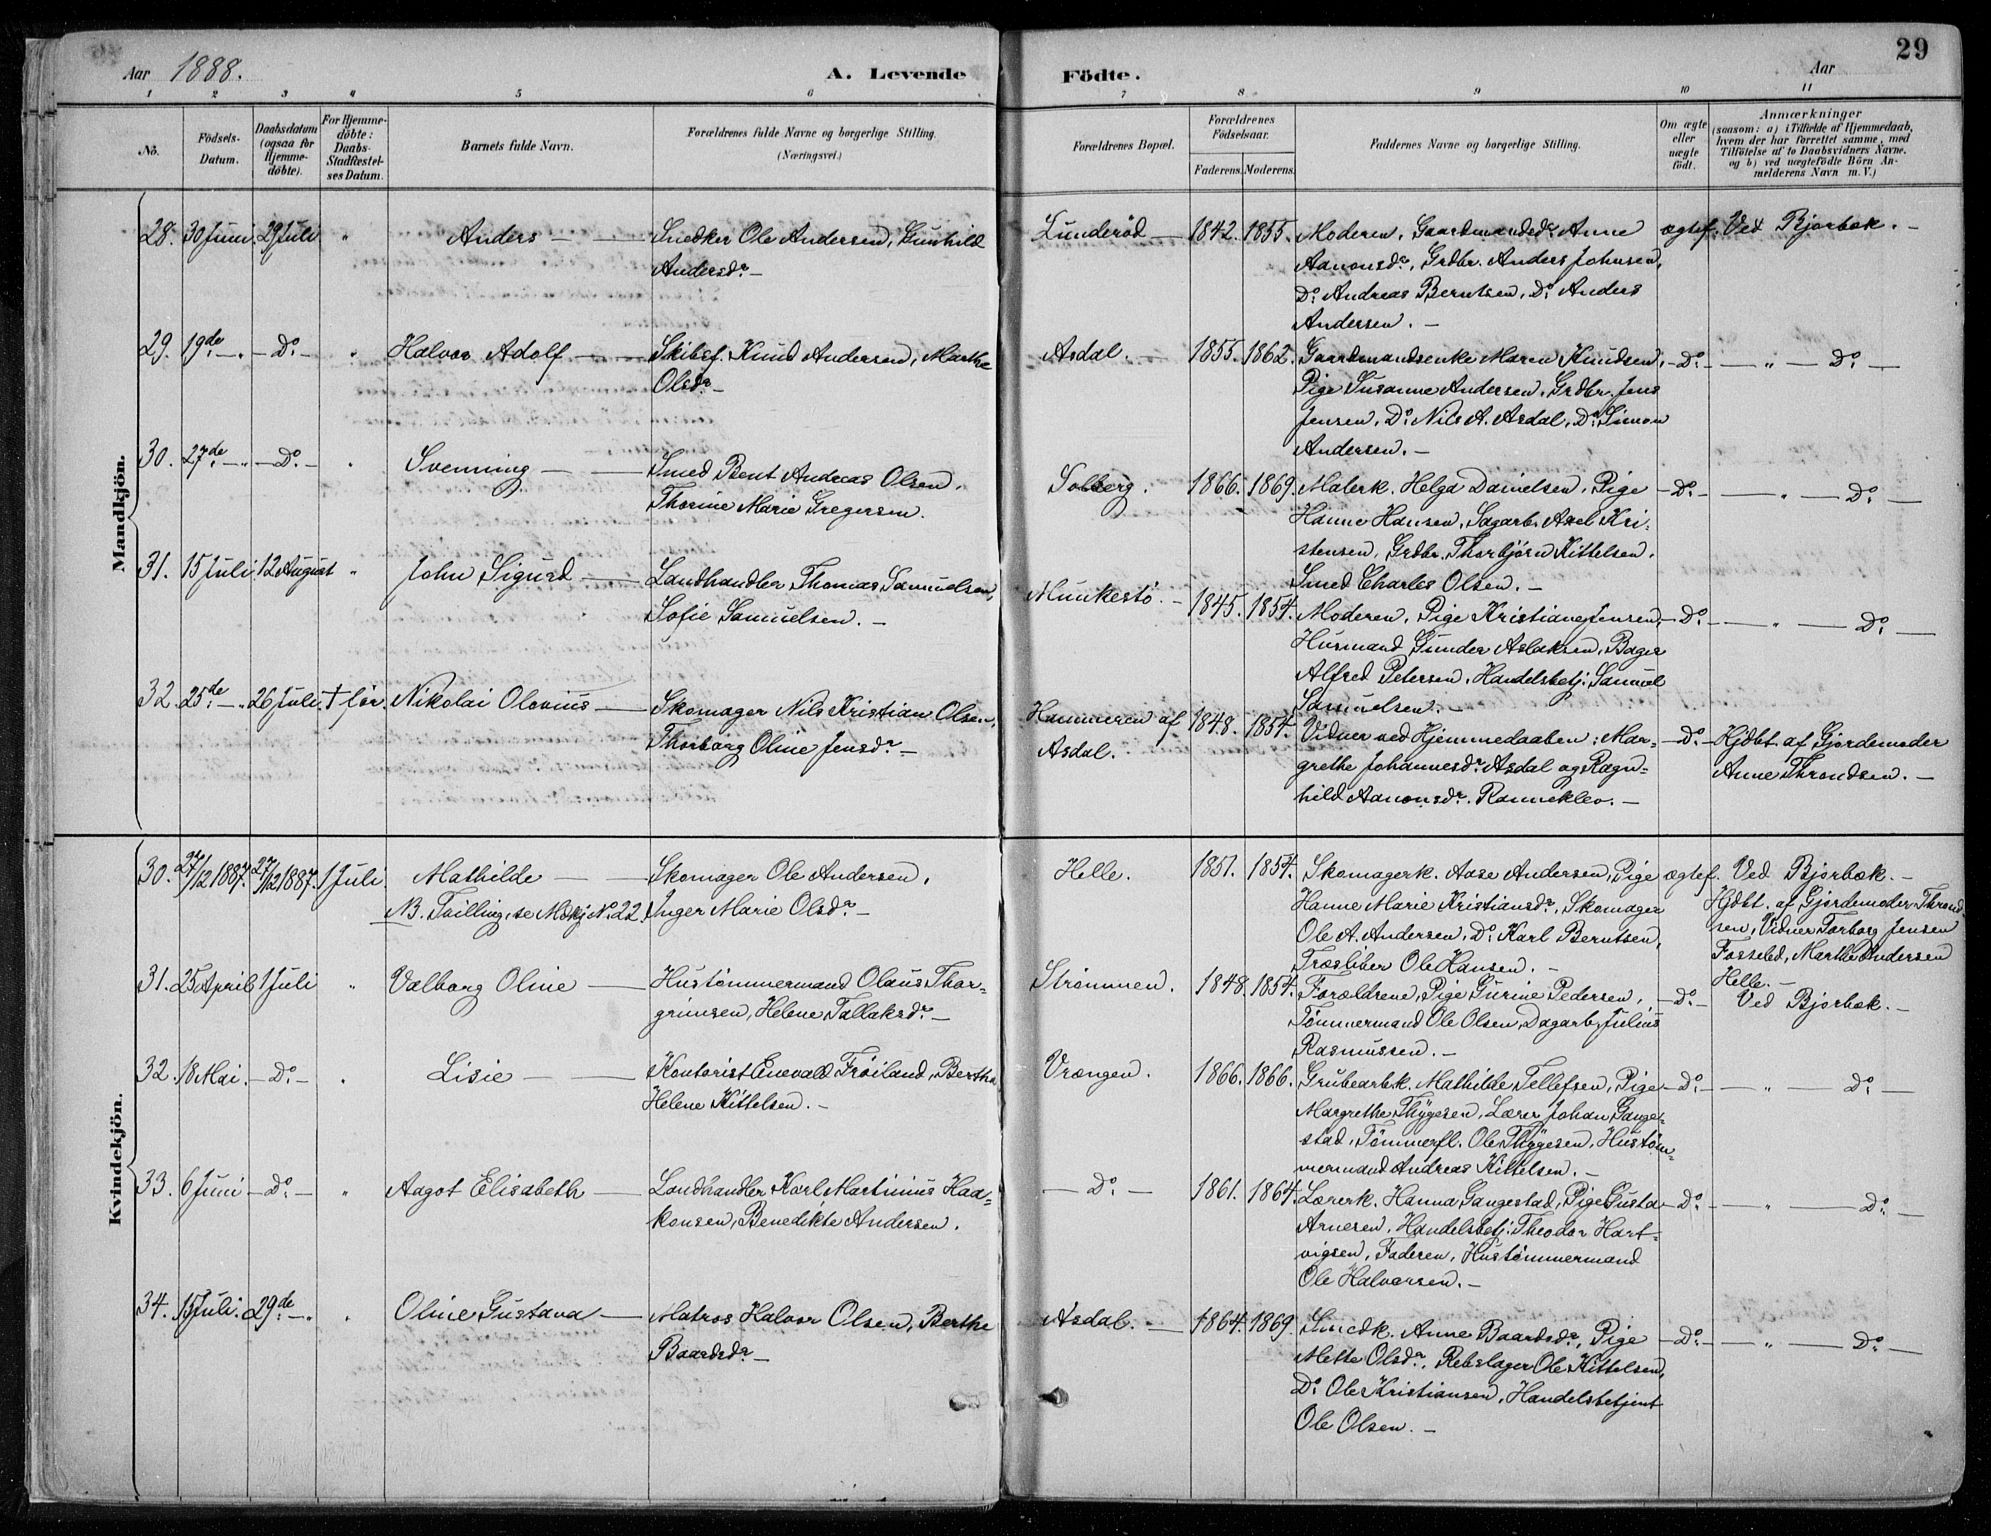 29
Aar 1888.
A. Levende
Födte.
Aar
1 2 3 4 5 6 7 8 9 10 11
Nô.
Födsels-
Datum.
Daabsdatum
(ogsaa for
Hjemme-
döbte).
For Hjemme-
döbte:
Daabs-
Stadfæstel-
ses Datum.
Barnets fulde Navn.
Forældrenes fulde Navne og borgerlige Stilling.
(Næringsvei.)
Forældrenes Bopæl.
Forældrenes
Födselsaar.
Faderens. Moderens.
Faddernes Navne og borgerlige Stilling.
Om ægte
eller
uægte
födt.
Anmærkninger
(saasom: a) i Tilfælde af Hjemmedaab,
hvem der har forrettet samme, med
Tilföielse af to Daabsvidners Navne,
og b) ved uægtefödte Börn An-
melderens Navn m. V.)
Mandkjön.
28. 30 Juni 29 Juli " Anders — Snedker Ole Andersen, Gunhild
Andersdr. —
Lunderöd — 1842. 1855. Moderen, Gaardmandsdr. Anne
Aanonsdr., Grdbr. Anders Johnsen,
Do. Andreas Berntsen, Do. Anders
Andersen. —
ægtef. Ved Bjorbæk. —
29. 19de — " — Do. — " Halvor Adolf — Skibsf. Knud Andersen, Marthe
Olsdr. —
Asdal. — 1855. 1862. Gaardmandsenke Maren Knudsen,
Pige Susanne Andersen, Grdbr. Jens
Jensen, Do. Nils A. Asdal, Do. Simon
Andersen. —
— Do. — — " — Do. —
30. 27de — " — Do. — " Svenning — Smed Bent Andreas Olsen,
Thorine Marie Gregersen.
Solberg. 1866. 1869. Malerk. Helga Danielsen, Pige
Hanne Hansen, Sagarb. Axel Kri-
stensen, Grdbr. Thorbjörn Kittelsen,
Smed Charles Olsen. —
— Do. — — " — Do. —
31. 15 Juli 12 August " John Sigurd — Landhandler Thomas Samuelsen,
Sofie Samuelsen. —
Munkestø. — 1845. 1854. Moderen, Pige Kristiane Jensen,
Husmand Gunder Aslaksen, Bager
Alfred Petersen, Handelsbetj. Samuel
Samuelsen. —
— Do. — — " — Do. —
32. 25de — " 26 Juli. † før. Nikolai Olovius — Skomager Nils Kristian Olsen,
Thorborg Oline Jensdr. —
Hammeren af
Asdal. 1848. 1854. Vidner ved Hjemmedaaben: Mar-
grethe Johannesdr. Asdal og Ragn-
hild Aanonsdr. Ranneklev. —
— Do. — Hjdbt. af Gjordemoder
Anne Throndsen. —
Kvindekjön.
30. 27/12 1887. 27/12 1887. 1 Juli. Mathilde — Skomager Ole Andersen,
NB. Tvilling, se Mdkj. No. 22. Inger Marie Olsdr. —
Helle. 1851. 1854. Skomagerk. Aase Andersen, Pige
Hanne Marie Kristiansdr., Skomager
Ole A. Andersen, Do. Karl Berntsen,
Træsliber Ole Hansen. —
ægtef. Ved Bjorbæk. —
Hjdbt. af Gjordemoder Thrond-
sen, Vidner Torborg Jensen
Fosseled, Marthe Andersen
Helle. —
31. 25 April 1 Juli " Valborg Oline — Hustömmermand Olaus Thor-
grimsen, Helene Tallaksdr. —
Strømmen. 1848. 1854. Forældrene, Pige Gurine Pedersen,
Tömmermand Ole Olsen, Dagarb. Julius
Rasmussen. —
— Do. — Ved Bjorbæk. —
32. 18 Mai. — Do. — " Lisie — Kontorist Enevald Frøiland, Bertha
Helene Kittelsen. —
Vrængen. 1866. 1866. Grubearbk. Mathilde Tellefsen, Pige
Margrethe Thygesen, Lærer Johan Gange-
stad, Tömmerfl. Ole Thygesen, Hustöm-
mermand Andreas Kittelsen. —
— Do. — — " — Do. —
33. 6 Juni — Do. — " Aagot Elisabeth — Landhandler Karl Martinius Haa-
konsen, Benedikte Andersen.
— Do. — 1861. 1864. Lærerk. Hanna Gangestad, Pige Gusta
Arnesen, Handelsbetj. Theodor Hart-
vigsen, Faderen, Hustömmermand
Ole Halvorsen. —
— Do. — — " — Do. —
34. 15 Juli. 29de — " " Oline Gustava — Matros Halvor Olsen, Berthe
Baardsdr. —
Asdal. — 1864. 1869. Smedk. Anne Baardsdr., Pige
Mette Olsdr., Rebslager Ole Kittelsen,
Do. Ole Kristiansen, Handelsbetjent
Ole Olsen. —
— Do. — — " — Do. —